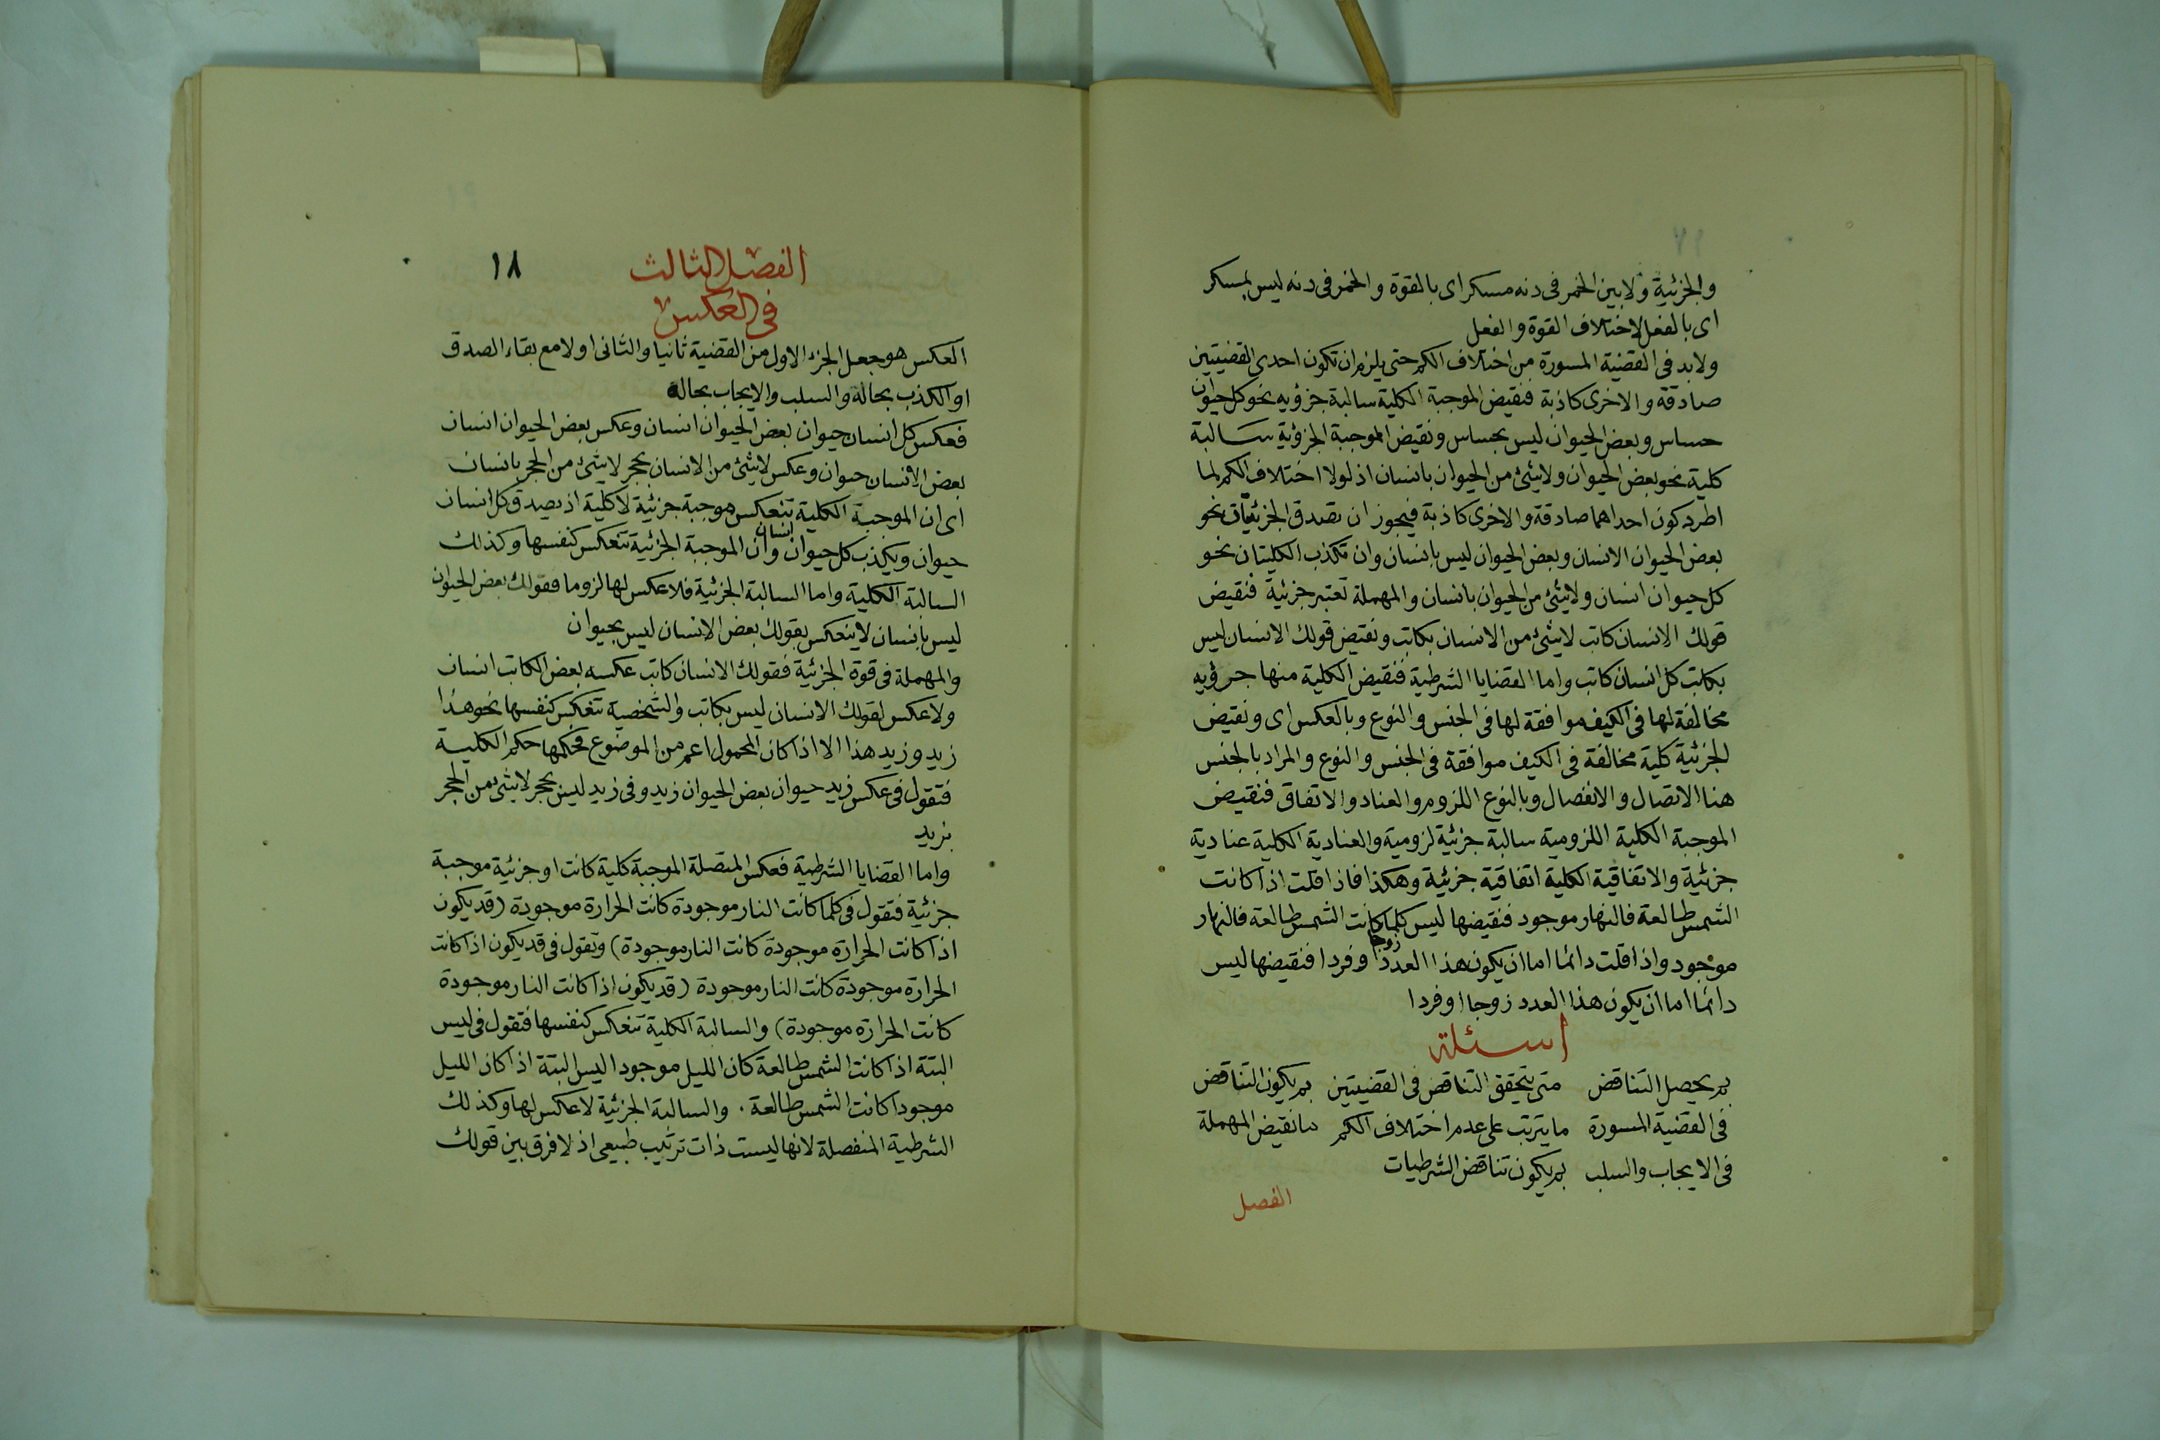 والجزئية ولا بين الخمر فى دنه مسكر اى بالقوة والخمر فى دنه ليس بمسكر
اى بالفعل لاختلاف القوة والفعل
ولا بد فى القضية المسورة من اختلاف الكم حتى يلزم ان تكون احدى القضيتين
صادقة والاخرى كاذبة فنقيض الموجبة الكلية سالبة جزؤيه نحو كل حيوان
حساس وبعض الحيوان ليس بحساس ونقيض الموجبة الجزؤية سالبة
كلية نحو بعض الحيوان ولا شئ من الحيوان بانسان اذ لولا اختلاف الكم لما
اطرد كون احداهما صادقة والاخرى كاذبة فيجوز ان تصدق الجزئيتان نحو
بعض الحيوان الانسان وبعض الحيوان ليس بانسان وان تكذب الكليتان نحو
كل حيوان انسان ولا شئ من الحيوان بانسان والمهملة تعتبر جزئية فنقيض
قولك الانسان كاتب لا شئ من الانسان بكاتب ونقيض قولك الانسان ليس
بكاتب كل انسان كاتب واما القضايا الشرطية فنقيض الكلية منها جزؤيه
مخالفة لها فى الكيف موافقة لها فى الجنس والنوع وبالعكس اى ونقيض
الجزئية كلية مخالفة فى الكيف موافقة فى الجنس والنوع والمراد بالجنس
هنا الاتصال والانفصال وبالنوع اللزوم والعناد والاتفاق فنقيض
الموجبة الكلية اللزومية سالبة جزئية لزومية والعنادية الكلية عنادية
جزئية والاتفاقية الكلية اتفاقية جزئية وهكذا فاذا قلت اذا كانت
الشمس طالعة فالنهار موجود فنقيضها ليس كلما كانت الشمس طالعة فالنهار
موجود واذا قلت دائما اما ان يكون هذا العدد زوجا وفردا فنقيضها ليس
دائما اما ان يكون هذا العدد زوجا او فردا
اسئلة
بم يحصل التناقض متى يتحقق التناقض فى القضيتين بم يكون التناقض
فى القضية المسورة ما يترتب على عدم اختلاف الكم ما نقيض المهملة
فى الايجاب والسلب بم يكون تناقض الشرطيات
الفصل
١٨
الفصل الثالث
فى العكس
العكس هو جعل الجزء الاول من القضية ثانيا والثانى اولا مع بقاء الصدق
او الكذب بحاله والسلب والايجاب بحاله
فعكس كل انسان حيوان بعض الحيوان انسان وعكس بعض الحيوان انسان
بعض الانسان حيوان وعكس لا شئ من الانسان بحجر لا شئ من الحجر بانسان
اى ان الموجبة الكلية تنعكس موجبة جزئية لا كلية اذ يصدق كل انسان
حيوان ويكذب كل حيوان انسان وان الموجبة الجزئية تنعكس كنفسها وكذلك
السالبة الكلية واما السالبة الجزئية فلا عكس لها لزوما فقولك بعض الحيوان
ليس بانسان لا ينعكس بقولك بعض الانسان ليس بحيوان
والمهملة فى قوة الجزئية فقولك الانسان كاتب عكسه بعض الكاتب انسان
ولا عكس لقولك الانسان ليس بكاتب والشخصية تنعكس كنفسها نحو هذا
زيد وزيد هذا الا اذا كان المحمول اعم من الموضوع فحكمها حكم الكلية
فتقول فى عكس زيد حيوان بعض الحيوان زيد وفى زيد ليس بحجر لا شئ من الحجر
بزيد
واما القضايا الشرطية فعكس المتصلة الموجبة كلية كانت او جزئية موجبة
جزئية فتقول فى كلما كانت النار موجودة كانت الحرارة موجودة (قد يكون
اذا كانت الحرارة موجودة كانت النار موجودة) وتقول فى قد يكون اذا كانت
الحرارة موجودة كانت النار موجودة (قد يكون اذا كانت النار موجودة
كانت الحرارة موجودة) والسالبة الكلية تنعكس كنفسها فتقول فى ليس
البتة اذا كانت الشمس طالعة كان الليل موجودا ليس البتة اذا كان الليل
موجودا كانت الشمس طالعة. والسالبة الجزئية لا عكس لها وكذلك
الشرطية المنفصلة لانها ليست ذات ترتيب طبيعى اذ لا فرق بين قولك